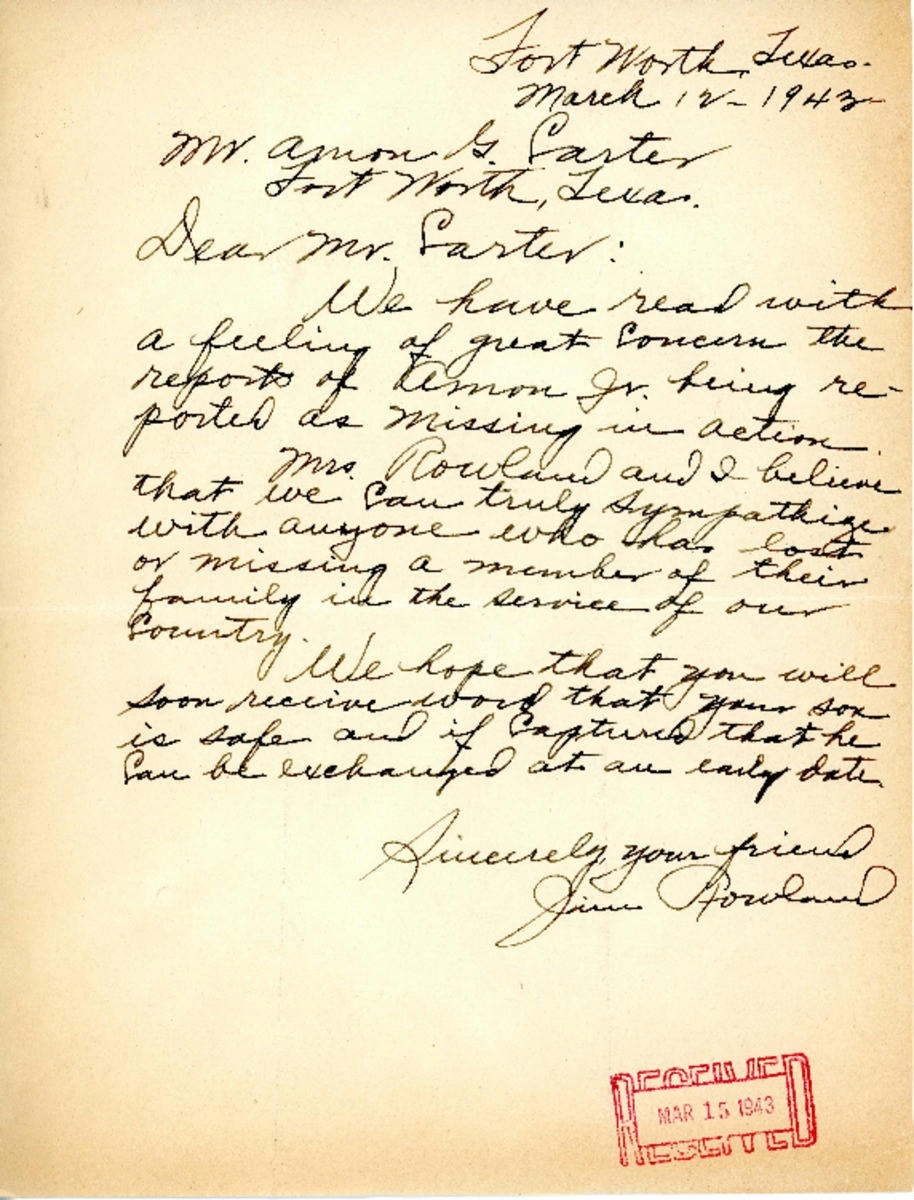 Fort Worth, Texas.
March 12 - 1943
Mr. Amon G. Carter
Fort Worth, Texas.
Dear Mr. Carter:
We have read with
a feeling of great concern the
reports of Amon Jr. being re-
ported as missing in action
Mrs. Rowland and I believe
that we can truly sympathize
with anyone who has lost
or missing a member of their
family in the service of our
Country.
We hope that you will
soon receive word that your son
is safe and if captured that he
can be exchanged at an early date.
Sincerely, your friend
Jim Rowland
RECEIVED
MAR 15 1943
RECEIVED